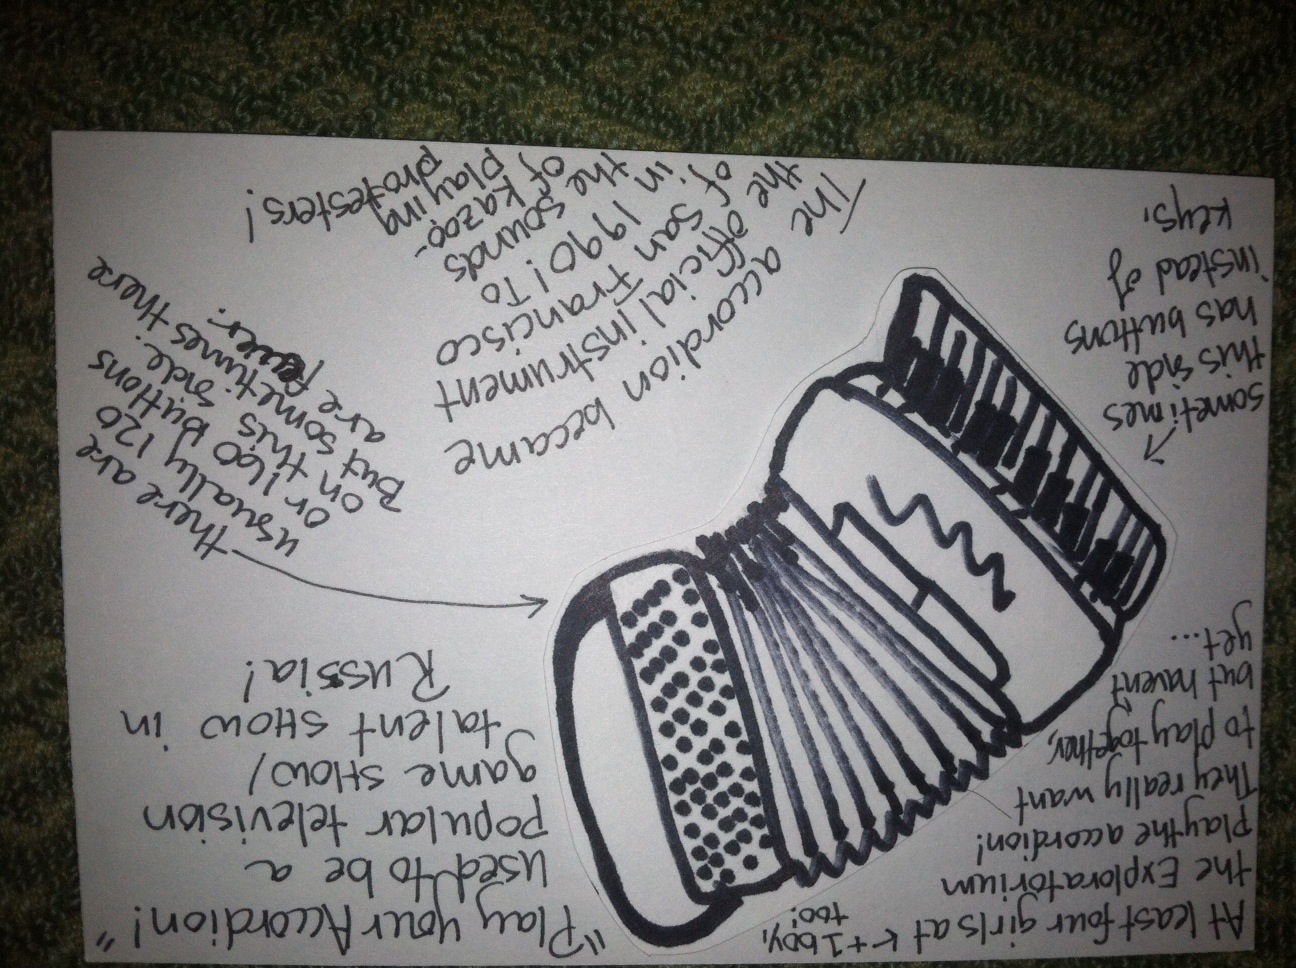 At least four girls at
the Exploratorium
play the accordion!
They really want
to play together,
but haven't
yet...
←+1 boy,
too!
"Play your Accordion!"
used to be a
popular television
game SHOW/
talent SHOW in
Russia!
there are
usually 120
or 160 buttons
on this side.
But sometimes there
are fewer.
sometimes
this side
has buttons
instead of
keys.
The accordion became
the official instrument
of San Francisco
in 1990! To
the sounds
of kazoo-
playing
protesters!